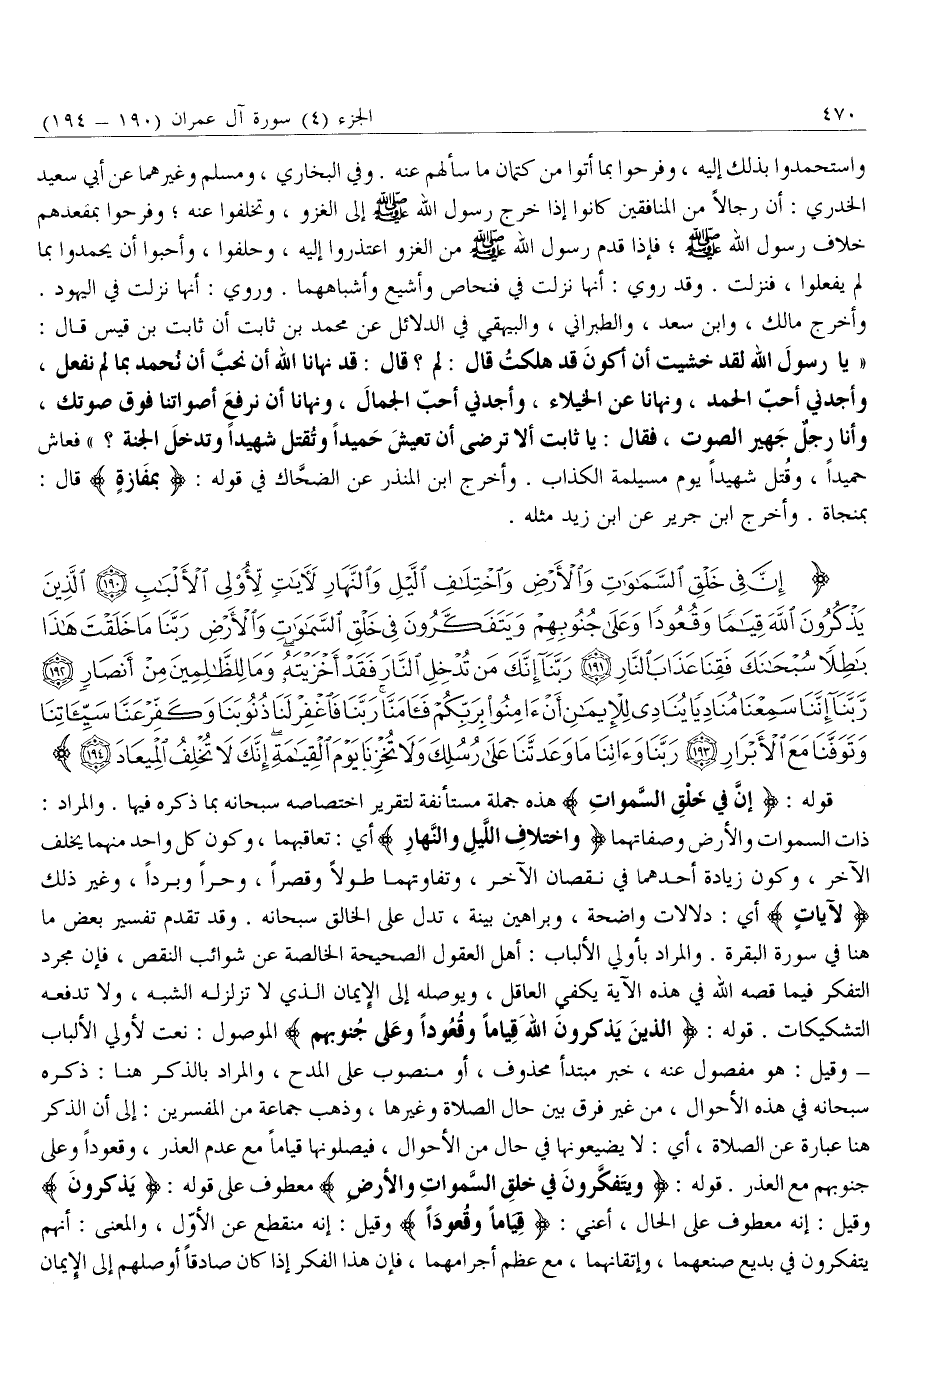 ٤٧٠ الجزء (٤) سورة آل عمران (١٩٠ – ١٩٤)
واستحمدوا بذلك إليه ، وفرحوا بما أتوا من كتمان ما سألهم عنه . وفي البخاري ، ومسلم وغيرهما عن أبي سعيد
الخدري : أن رجالاً من المنافقين كانوا إذا خرج رسول الله ﷺ إلى الغزو ، وتخلفوا عنه ؛ وفرحوا بمقعدهم
خلاف رسول الله ﷺ ؛ فإذا قدم رسول الله ﷺ من الغزو اعتذروا إليه ، وحلفوا ، وأحبوا أن يحمدوا بما
لم يفعلوا ، فنزلت . وقد روي : أنها نزلت في فنحاص وأشيع وأشباههما . وروي : أنها نزلت في اليهود .
وأخرج مالك ، وابن سعد ، والطبراني ، والبيهقي في الدلائل عن محمد بن ثابت أن ثابت بن قيس قال :
« يا رسولَ الله لقد خشيت أن أكونَ قد هلكتُ قال : لم ؟ قال : قد نهانا الله أن نحبَّ أن نُحمد بما لم نفعل ،
وأجدني أحبّ الحمد ، ونهانا عن الخيلاء ، وأجدني أحبّ الجمالَ ، ونهانا أن نرفعَ أصواتنا فوق صوتك ،
وأنا رجلٌ جَهير الصوت ، فقال : يا ثابت ألا ترضى أن تعيشَ حَميداً وتُقتل شهيداً وتدخلَ الجنة ؟ » فعاش
حميداً ، وقُتل شهيداً يوم مسيلمة الكذاب . وأخرج ابن المنذر عن الضحَّاك في قوله : ﴿ بمفَازةٍ ﴾ قال :
بمنجاة . وأخرج ابن جرير عن ابن زيد مثله .
﴿ إِنَّ فِى خَلْقِ ٱلسَّمَٰوَٰتِ وَٱلْأَرْضِ وَٱخْتِلَٰفِ ٱلَّيْلِ وَٱلنَّهَارِ لَأٓيَٰتٍ لِّأُو۟لِى ٱلْأَلْبَٰبِ ١٩٠ ٱلَّذِينَ
يَذْكُرُونَ ٱللَّهَ قِيَٰمًا وَقُعُودًا وَعَلَىٰ جُنُوبِهِمْ وَيَتَفَكَّرُونَ فِى خَلْقِ ٱلسَّمَٰوَٰتِ وَٱلْأَرْضِ رَبَّنَا مَا خَلَقْتَ هَٰذَا
بَٰطِلًا سُبْحَٰنَكَ فَقِنَا عَذَابَ ٱلنَّارِ ١٩١ رَبَّنَآ إِنَّكَ مَن تُدْخِلِ ٱلنَّارَ فَقَدْ أَخْزَيْتَهُۥ وَمَا لِلظَّٰلِمِينَ مِنْ أَنصَارٍ ١٩٢
رَّبَّنَآ إِنَّنَا سَمِعْنَا مُنَادِيًا يُنَادِى لِلْإِيمَٰنِ أَنْ ءَامِنُوا۟ بِرَبِّكُمْ فَـَٔامَنَّا رَبَّنَا فَٱغْفِرْ لَنَا ذُنُوبَنَا وَكَفِّرْ عَنَّا سَيِّـَٔاتِنَا
وَتَوَفَّنَا مَعَ ٱلْأَبْرَارِ ١٩٣ رَبَّنَا وَءَاتِنَا مَا وَعَدتَّنَا عَلَىٰ رُسُلِكَ وَلَا تُخْزِنَا يَوْمَ ٱلْقِيَٰمَةِ إِنَّكَ لَا تُخْلِفُ ٱلْمِيعَادَ ١٩٤ ﴾
قوله : ﴿ إنَّ في خَلْقِ السَّمواتِ ﴾ هذه جملة مستأنفة لتقرير اختصاصه سبحانه بما ذكره فيها . والمراد :
ذات السموات والأرض وصفاتهما ﴿ واختلافِ اللَّيلِ والنَّهارِ ﴾ أي : تعاقبهما ، وكون كل واحد منهما يخلف
الآخر ، وكون زيادة أحدهما في نقصان الآخر ، وتفاوتهما طولاً وقصراً ، وحراً وبرداً ، وغير ذلك
﴿ لآياتٍ ﴾ أي : دلالات واضحة ، وبراهين بينة ، تدل على الخالق سبحانه . وقد تقدم تفسير بعض ما
هنا في سورة البقرة . والمراد بأولي الألباب : أهل العقول الصحيحة الخالصة عن شوائب النقص ، فإن مجرد
التفكر فيما قصه الله في هذه الآية يكفي العاقل ، ويوصله إلى الإيمان الذي لا تزلزله الشبه ، ولا تدفعه
التشكيكات . قوله : ﴿ الذينَ يَذكرونَ اللهَ قِياماً وقُعُوداً وعَلى جُنُوبهم ﴾ الموصول : نعت لأولي الألباب
– وقيل : هو مفصول عنه ، خبر مبتدأ محذوف ، أو منصوب على المدح ، والمراد بالذكر هنا : ذكره
سبحانه في هذه الأحوال ، من غير فرق بين حال الصلاة وغيرها ، وذهب جماعة من المفسرين : إلى أن الذكر
هنا عبارة عن الصلاة ، أي : لا يضيعونها في حال من الأحوال ، فيصلونها قياماً مع عدم العذر ، وقعوداً وعلى
جنوبهم مع العذر . قوله : ﴿ ويتفكَّرونَ في خلقِ السَّمواتِ والأرضِ ﴾ معطوف على قوله : ﴿ يَذكرونَ ﴾
وقيل : إنه معطوف على الحال ، أعني : ﴿ قِيَاماً وقُعودَاً ﴾ وقيل : إنه منقطع عن الأوّل ، والمعنى : أنهم
يتفكرون في بديع صنعهما ، وإتقانهما ، مع عظم أجرامهما ، فإن هذا الفكر إذا كان صادقاً أوصلهم إلى الإيمان